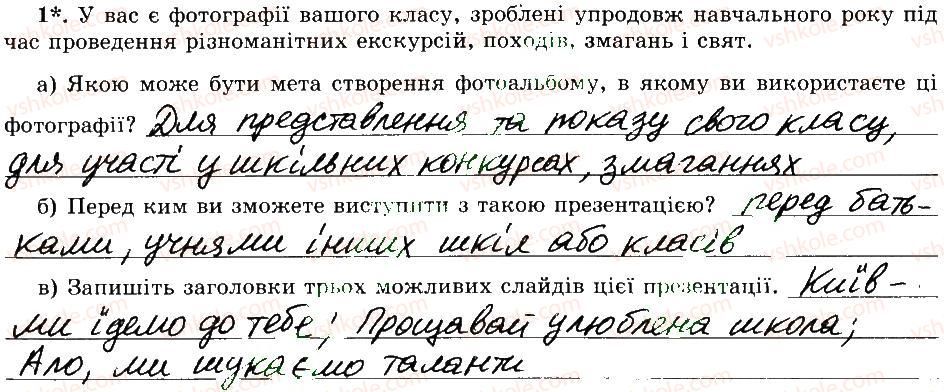 1*. У вас є фотографії вашого класу, зроблені упродовж навчального року під
час проведення різноманітних екскурсій, походів, змагань і свят.
а) Якою може бути мета створення фотоальбому, в якому ви використаєте ці
фотографії? Для представлення та показу свого класу,
для участі у шкільних конкурсах, змаганнях
б) Перед ким ви зможете виступити з такою презентацією? перед бать-
ками, учнями інших шкіл або класів
в) Запишіть заголовки трьох можливих слайдів цієї презентації. Київ -
ми їдемо до тебе; Прощавай улюблена школа;
Ало, ми шукаємо таланти